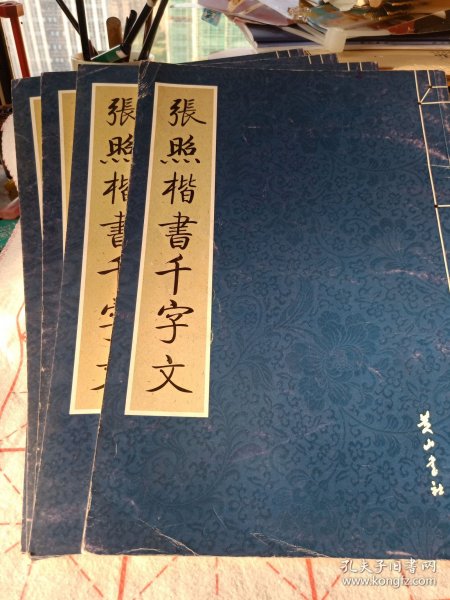 張照楷書千字文
張照楷書千字文
黄山書社
孔夫子旧书网
www.kongfz.com